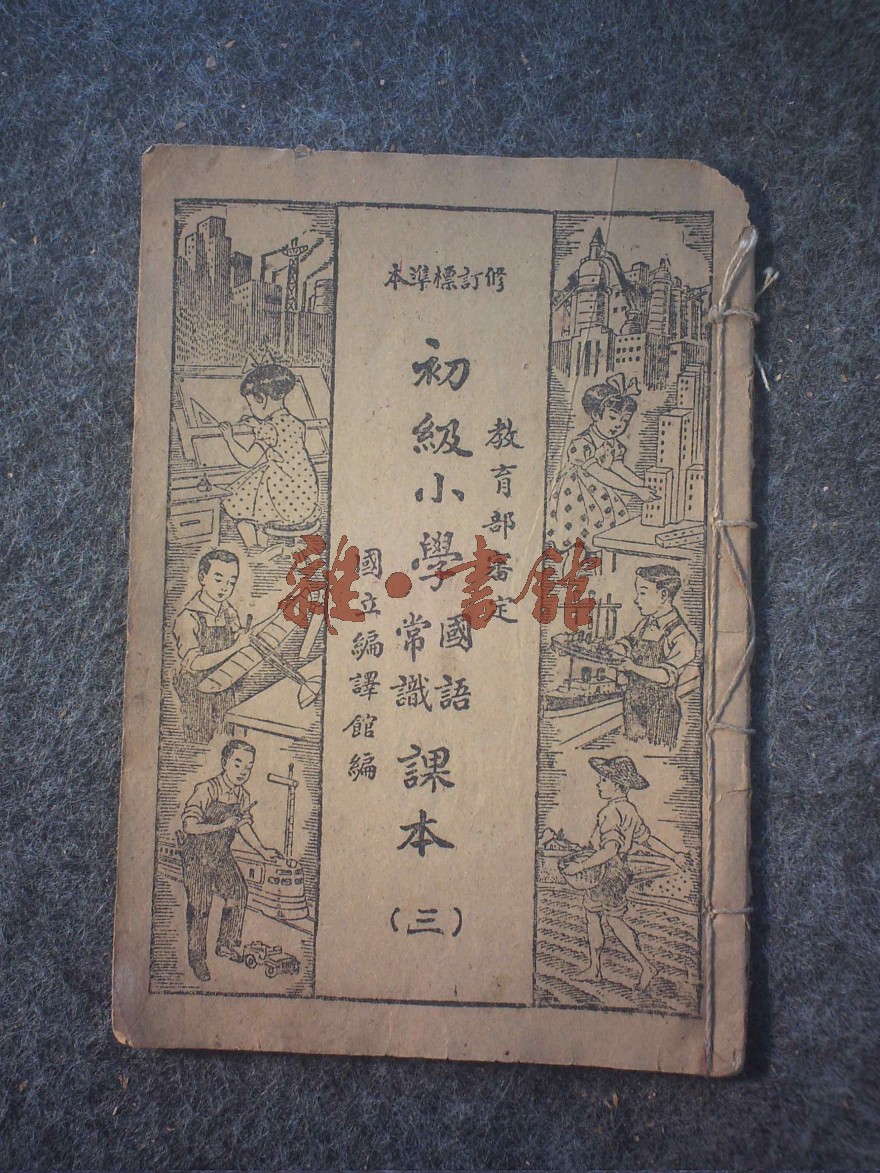 修訂標準本
教育部審定
初級小學國語常識課本
(三)
國立編譯館編
雜·書館